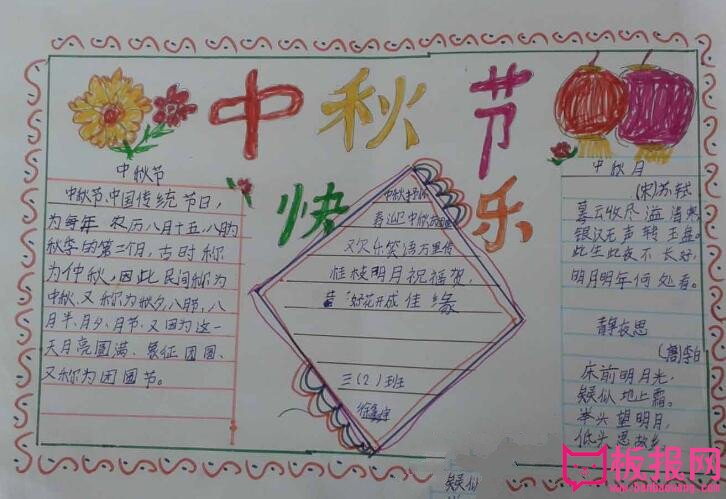 中秋节
快乐
中秋节
中秋节、中国传统节日,
为每年 农历八月十五、八月为
秋季的第二个月,古时称
为仲秋,因此民间称为
中秋、又称为秋夕、八月节、八
月半、月夕、月节、又因为这一
天月亮圆满、象征团圆、
又称为团圆节。
喜迎中秋
又欢乐笑语万里传
桂枝明月祝福贺,
好花开成佳缘
三(2)班
中秋月
(宋)苏轼
暮云收尽溢清寒
银汉无声转玉盘。
此生此夜不长好,
明月明年何处看。
静夜思
(唐)李白
床前明月光,
疑似地上霜。
举头望明月,
低头思故乡
疑似
板报网
www.banbaowang.com